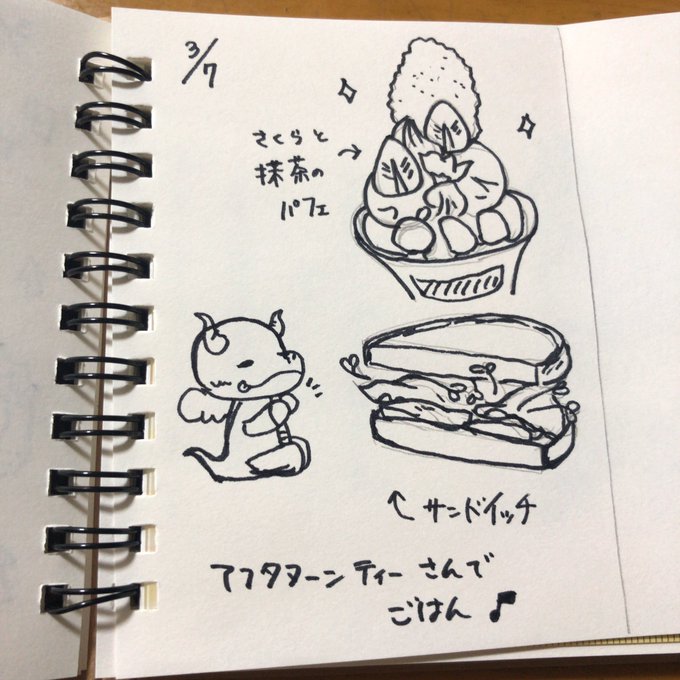 3/7
さくらと
抹茶の
パフェ
サンドイッチ
アフタヌーンティーさんで
ごはん♪